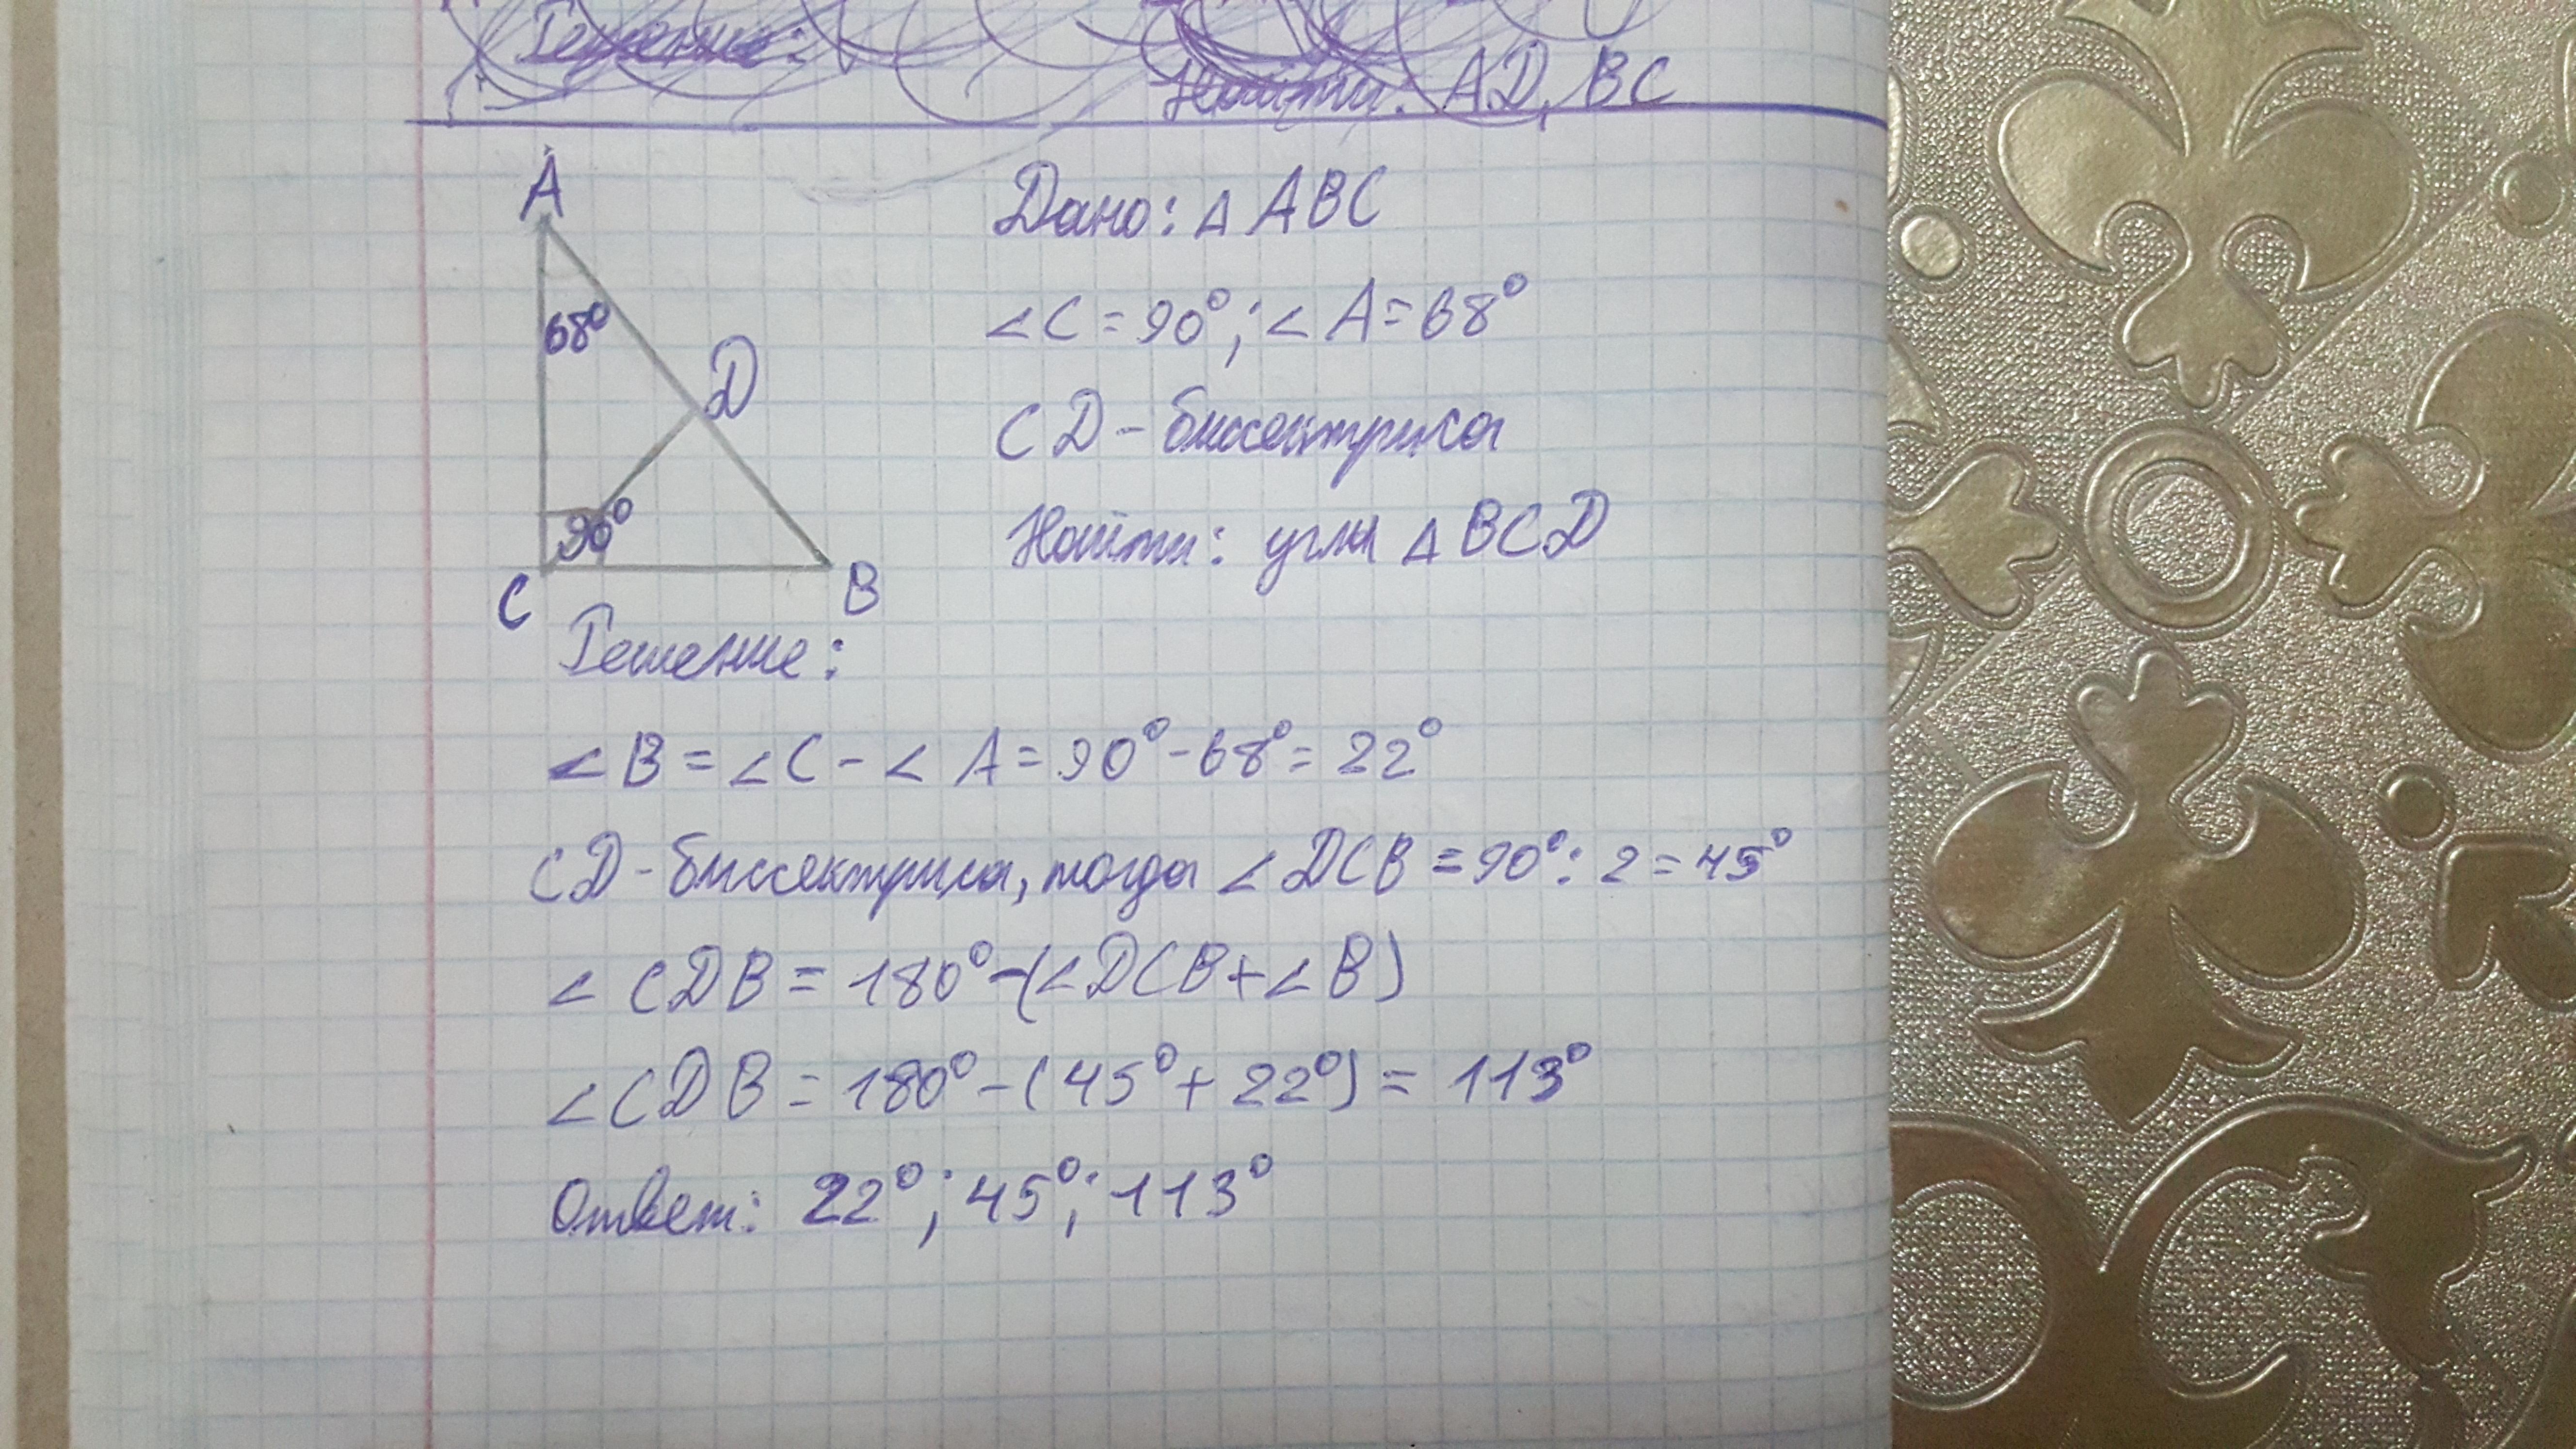 Решение:
Найти: AD, BC
A
68°
D
90°
C
B
Дано: △ ABC
∠C = 90°; ∠A = 68°
CD - биссектриса
Найти: углы △ BCD
Решение:
∠B = ∠C - ∠A = 90° - 68° = 22°
CD - биссектриса, тогда ∠DCB = 90° : 2 = 45°
∠CDB = 180° - (∠DCB + ∠B)
∠CDB = 180° - (45° + 22°) = 113°
Ответ: 22°; 45°; 113°